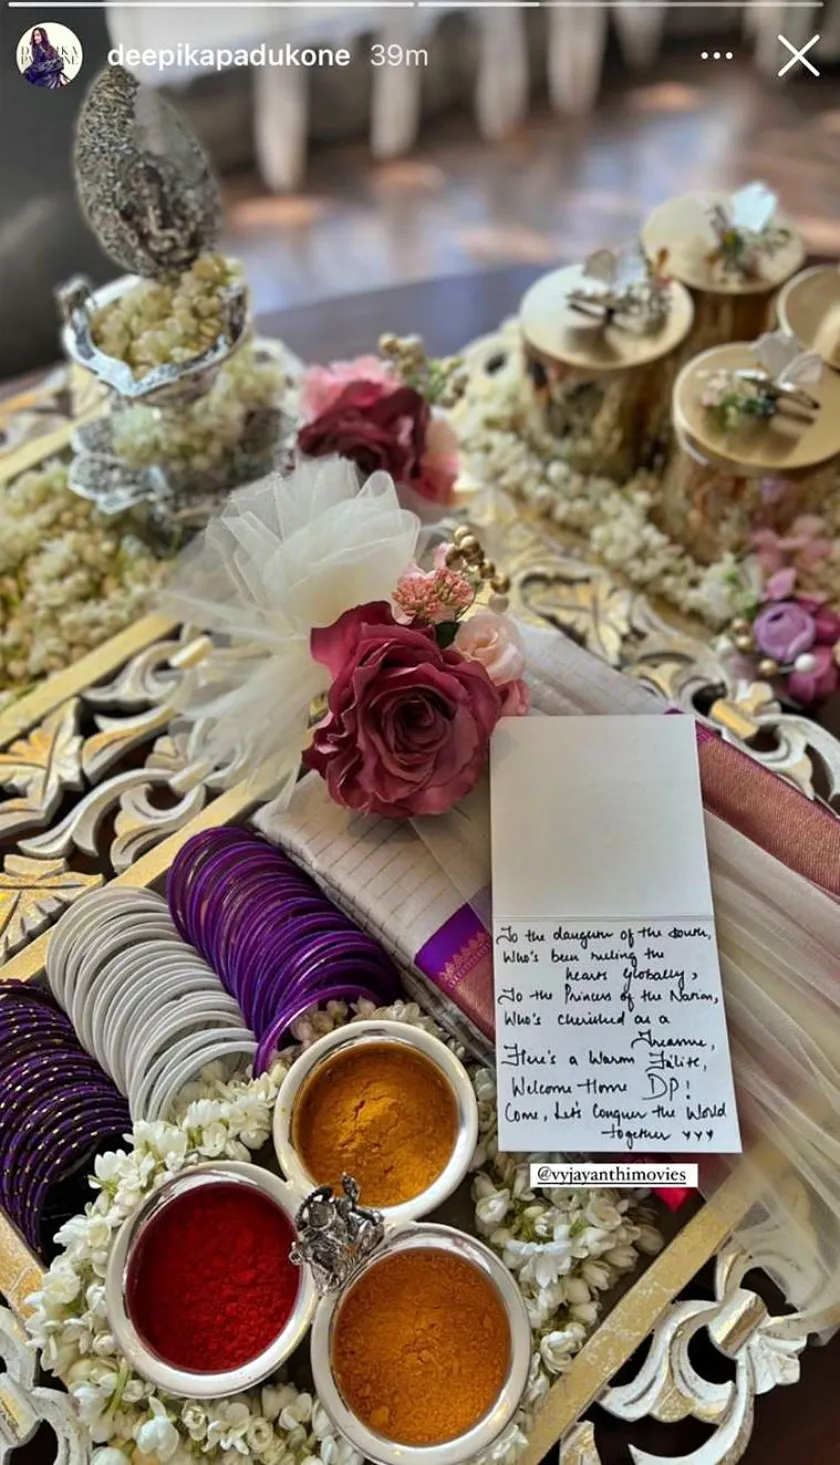 deepikapadukone 39m
To the daughter of the south,
Who's been ruling the
hearts globally,
To the Princess of the Nation,
Who's cherished as a
Treasure,
Here's a Warm
Welcome Home DP!
Come, Let's Conquer the World
together
@vyjayanthimovies